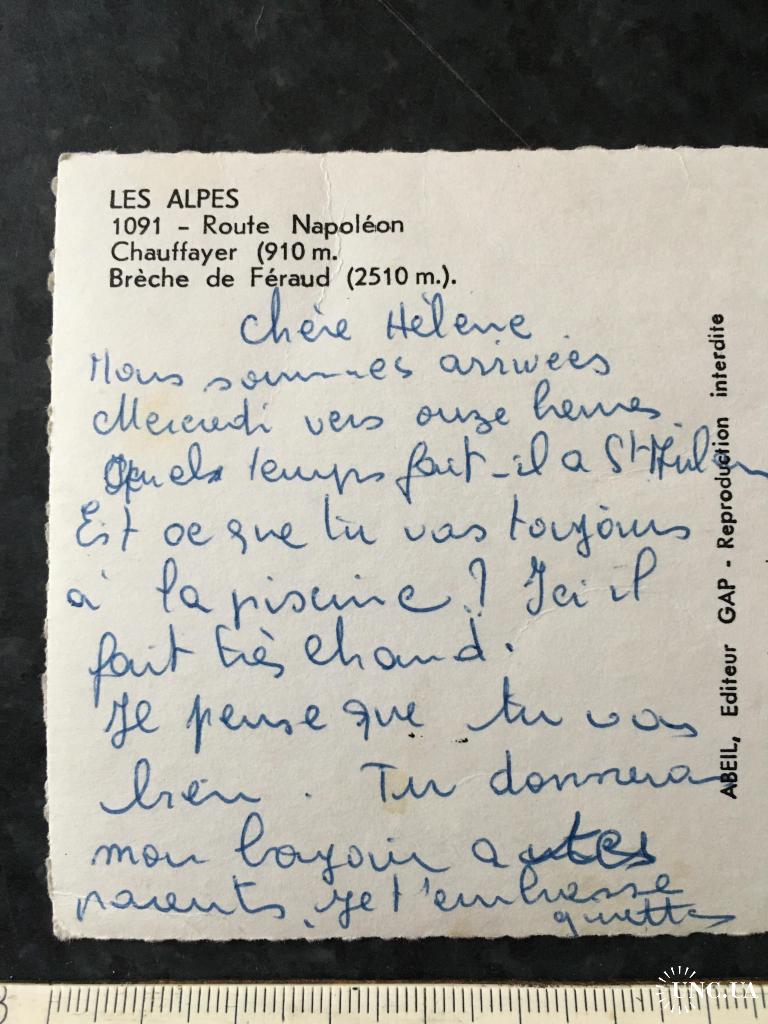 LES ALPES
1091 - Route Napoléon
Chauffayer (910 m.
Brèche de Féraud (2510 m.).
Chère Hélène
Nous sommes arrivées
Mercredi vers onze heures
Quels temps fait-il a St
Est ce que tu vas toujours
à la piscine ? Ici il
fait très chaud.
Je pense que tu vas
bien. Tu donnera
mon bonjour a tes
parents. Je t'embrasse
ABEIL, Editeur GAP - Reproduction interdite
3
UNC.UA